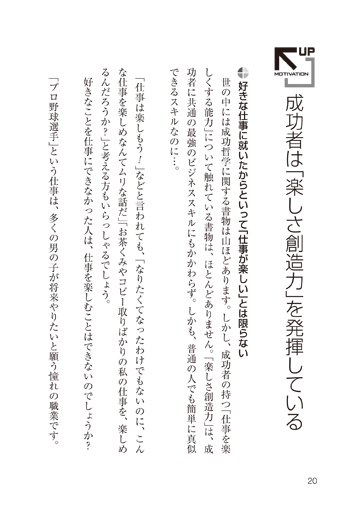 UP
MOTIVATION
成功者は「楽しさ創造力」を発揮している
好きな仕事に就いたからといって「仕事が楽しい」とは限らない
世の中には成功哲学に関する書物は山ほどあります。しかし、成功者の持つ「仕事を楽
しくする能力」について触れている書物は、ほとんどありません。「楽しさ創造力」は、成
功者に共通の最強のビジネススキルにもかかわらず。しかも、普通の人でも簡単に真似
できるスキルなのに…。
「仕事は楽しもう！」などと言われても、「なりたくてなったわけでもないのに、こん
な仕事を楽しめなんてムリな話だ」「お茶くみやコピー取りばかりの私の仕事を、楽しめ
るんだろうか？」と考える方もいらっしゃるでしょう。
好きなことを仕事にできなかった人は、仕事を楽しむことはできないのでしょうか？
「プロ野球選手」という仕事は、多くの男の子が将来やりたいと願う憧れの職業です。
20